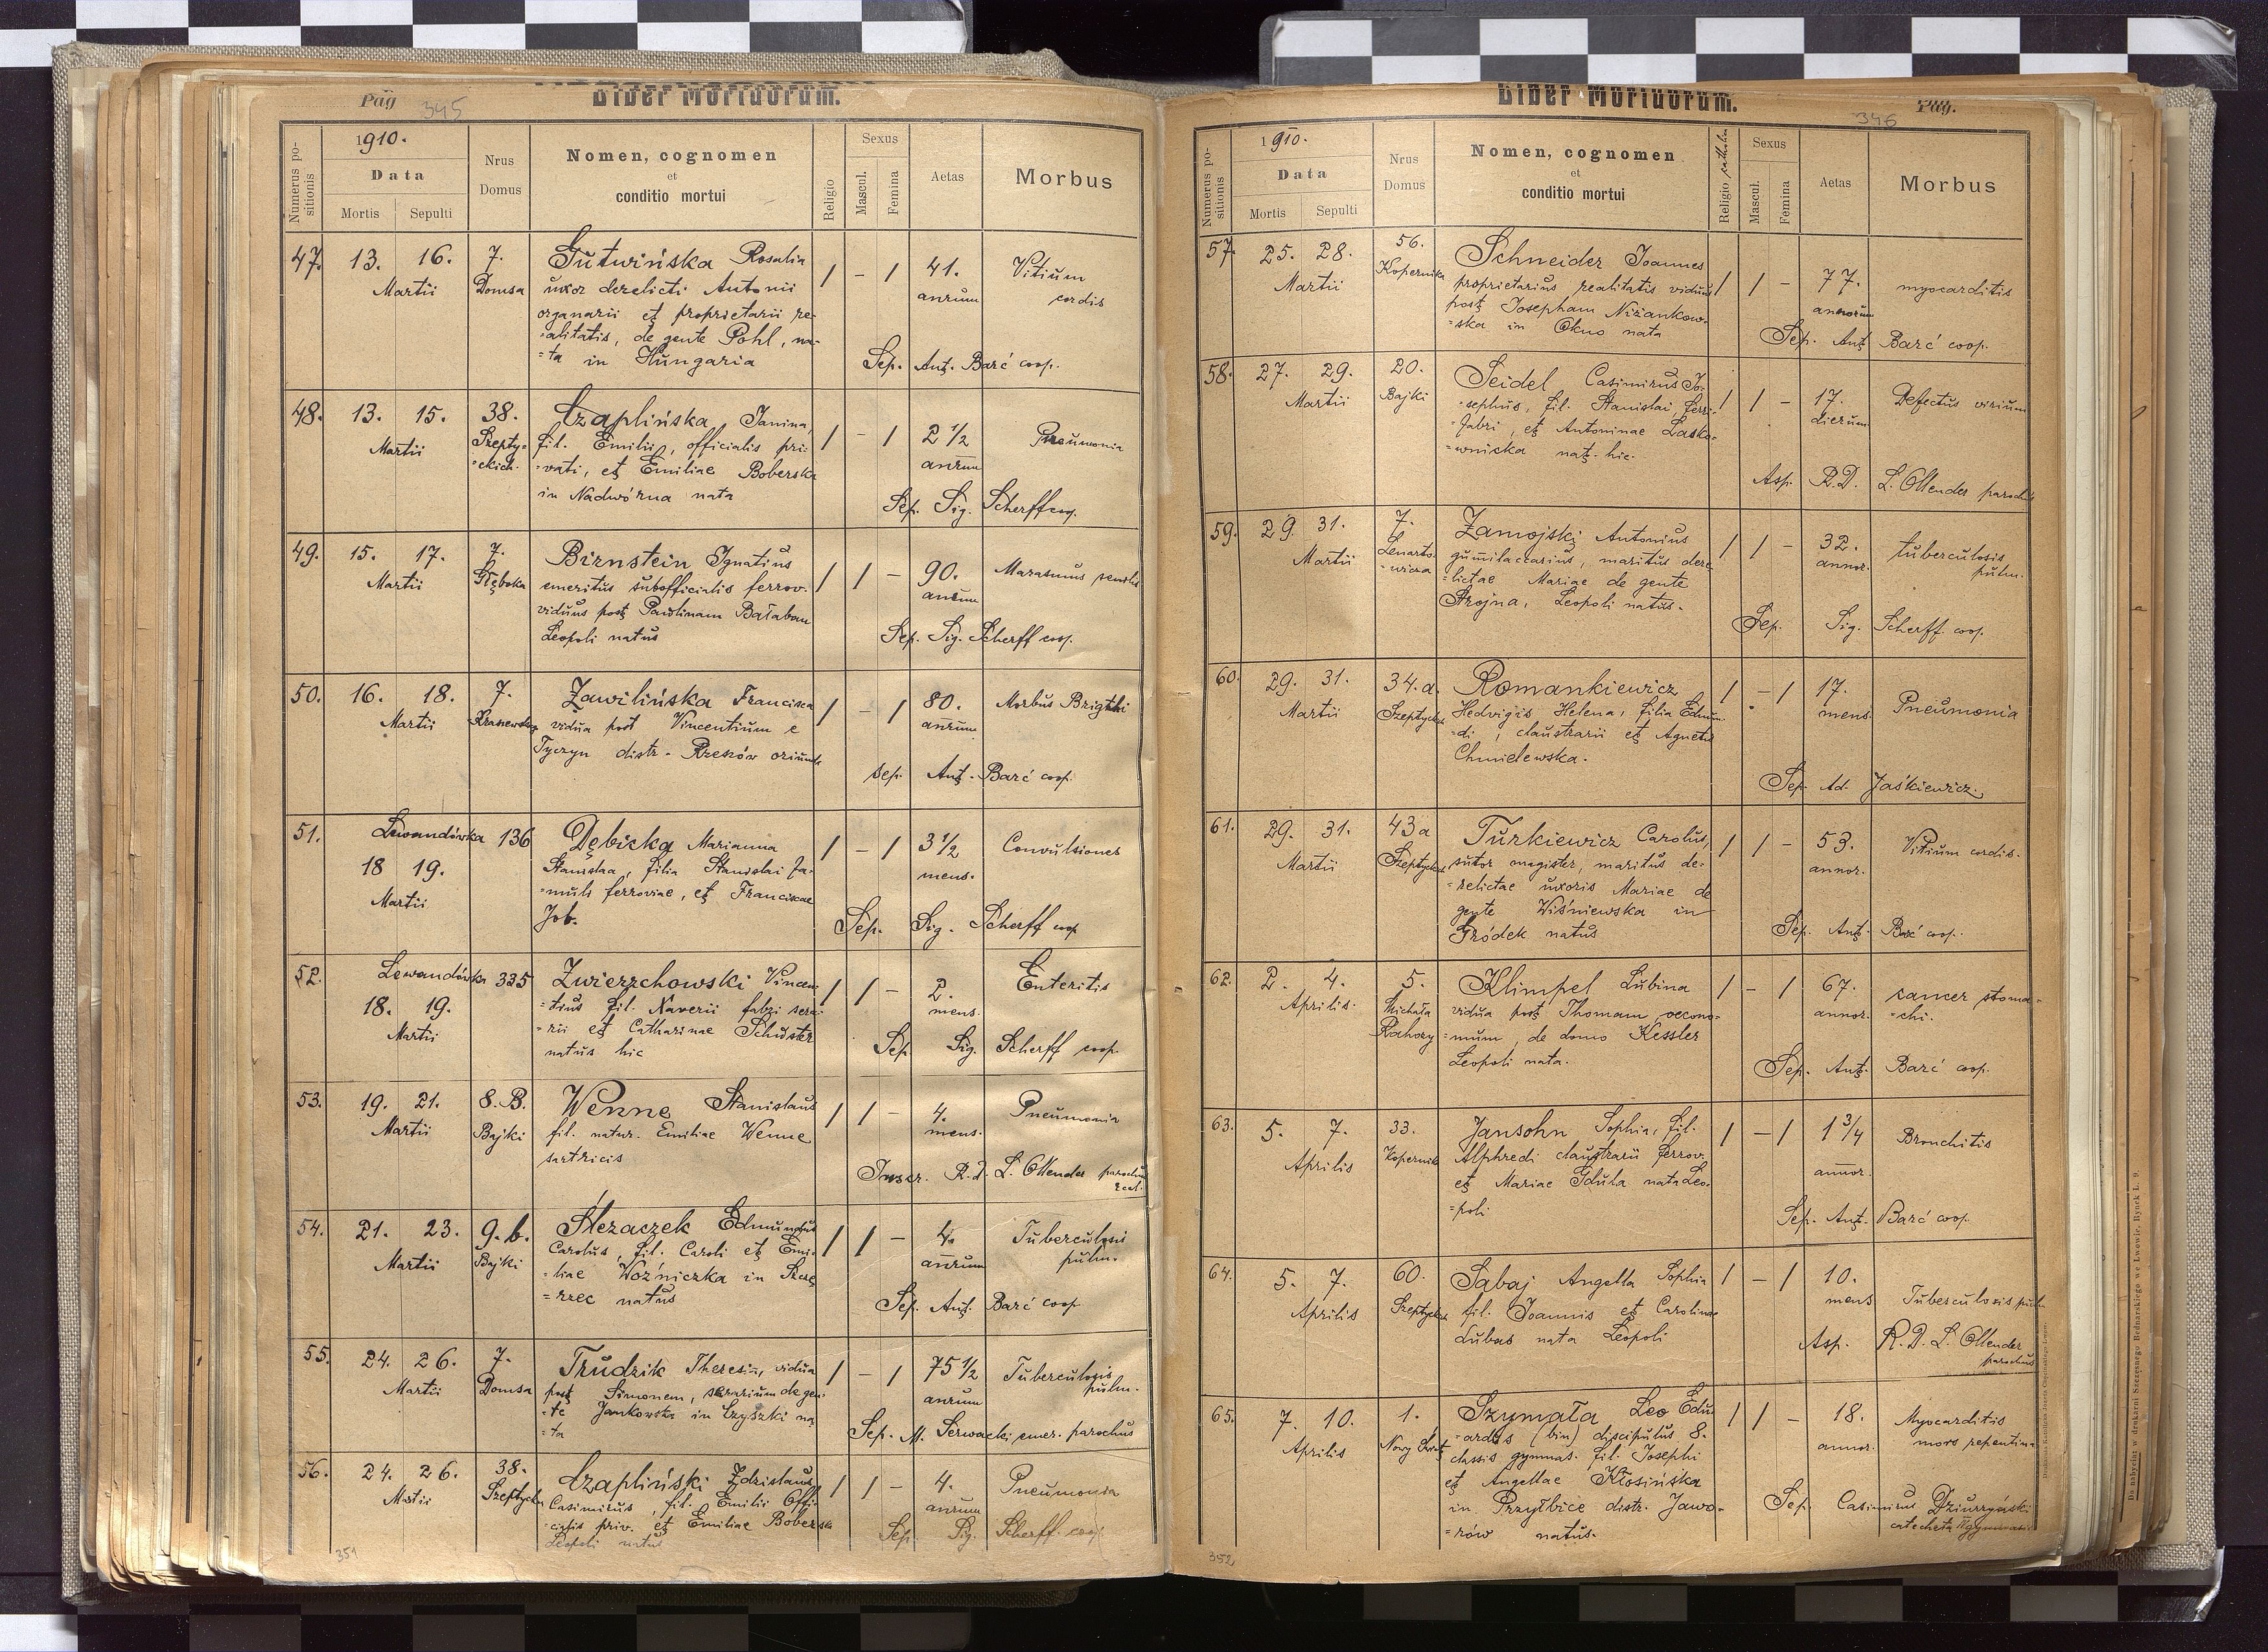 Pag 345
Liber Mortuorum.
Numerus positionis
1910.
Data
Mortis Sepulti
Nrus Domus
Nomen, cognomen
et
conditio mortui
Religio
Sexus
Mascul. Femina
Aetas
Morbus
47. 13. 16. 7. Gutwińska Rosalia / - / 41. Vitium
Martii Domsa uxor derelicti Antonii anrum cordis
organarii et proprietarii re-
=alitatis, de gente Pohl, na-
=ta in Hungaria Sep. Ant. Barć coop.
48. 13. 15. 38. Czaplińska Janina, / - / 2 1/2 Pneumonia
Martii Szepty= fil. Emilii, officialis pri- anrum
=ckich. =vati, et Emiliae Boberska
in Nadwórna nata Sep. Sig. Scherff coop.
49. 15. 17. 7. Birnstein Ignatius / / - 90. Marasmus senilis
Martii Głęboka emeritus subofficialis ferrov. anrum
viduus post Paulinam Bałaban
Leopoli natus Sep. Sig. Scherff coop.
50. 16. 18. 7. Zawilińska Francisca / - / 80. Morbus Brigthi
Martii vidua post Vincentium e anrum
Tyczyn distr. Rzeszów oriunda
sep. Ant. Barć coop.
51. Lewandówka 136 Dębicka Marianna / - / 3 1/2 Convulsiones
18 19. Stanislaa, filia Stanislai fa- mens.
Martii =muli ferroviae, et Franciscae
Job. Sep. Sig. Scherff coop
52. Lewandówka 335 Zwierzchowski Vincen / / - 2. Enteritis
18. 19. =tius fil. Xaverii fabri sera- mens.
Martii =rii et Catharinae Schuster
natus hic Sep. Sig. Scherff coop.
53. 19. 21. 8. B. Wenne Stanislaus / / - 4. Pneumonia
Martii Bajki fil. natur. Emiliae Wenne mens.
sartricis
Inscr. R.d. L. Ollender parochus
54. 21. 23. 9. b. Slezaczek Edmundus / / - 4. Tuberculosis
Martii Bajki Carolus, fil. Caroli et Emi- anrum pulm.
=liae Woźniczka in Szcze
=rzec natus Sep. Ant. Barć coop
55. 24. 26. 7. Trudzik Theresia, vidua / - / 75 1/2 Tuberculosis
Martii Domsa post Simonem, serarium de gen- anrum pulm.
=te Jankowska in Czyszki na
=ta Sep. M. Serwacki emer. parochus
56. 24. 26. 38. Czapliński Zdzislaus / / - 4. Pneumonia
Martii Szeptyck Casimirus, fil. Emilii Offi- anrum
=cialis priv. et Emiliae Boberska
Leopoli natus Sep. Sig. Scherff. coop.
351
Liber Mortuorum.
Pag.
346
Numerus positionis
1910.
Data
Mortis Sepulti
Nrus Domus
Nomen, cognomen
et
conditio mortui
Religio catholica
Sexus
Mascul. Femina
Aetas
Morbus
57. 25. 28. 56. Schneider Joannes / / - 77. myocarditis
Martii Kopernika proprietarius realitatis viduus annorum
post Josepham Niżankow-
=ska in Okno nata Sep. Ant Barć coop.
58. 27. 29. 20. Seidel Casimirus Jo- / / - 17. Defectus virium
Martii Bajki =sephus, fil. Stanislai, ferri- dierum
=fabri, et Antoninae Lasko-
=wnicka nat. hic.
Asp. R.D. L. Ollender parochus
59. 29. 31. 7. Zamojski Antonius / / - 32. tuberculosis
Martii Lenarto- gumilaccarius, maritus dere- annor. pulm.
=wicza =lictae Mariae de gente
Strojna, Leopoli natus.
Sep. Sig. Scherff. coop.
60. 29. 31. 34.a. Romankiewicz / - / 17. Pneumonia
Martii Szeptyckich Hedvigis Helena, filia Edmun mens.
=di, claustrarii et Agnetis
Chmielewska.
Sep. Ad. Jaśkiewicz.
61. 29. 31. 43a Turkiewicz Carolus, / / - 53. Vitium cordis.
Martii Szeptyckich sutor magister, maritus de- annor.
=relictae uxoris Mariae de
gente Wiśniewska in
Gródek natus Sep. Ant. Barć coop.
62. 2. 4. 5. Klimpel Lubina / - / 67. cancer stoma=
Aprilis. Michała vidua post Thomam oecono- annor. =chi.
Rahozy =mum, de domo Kessler
Leopoli nata. Sep. Ant. Barć coop.
63. 5. 7. 33. Jansohn Sophia, fil. / - / 1 3/4 Bronchitis
Aprilis Kopernik Alphredi claustrarii ferrov. annor.
et Mariae Gduła nata Leo-
=poli Sep. Ant. Barć coop.
64. 5. 7. 60. Sabaj Angella Sophia / - / 10. Tuberculosis pulm
Aprilis Szeptyckich fil. Joannis et Carolinae mens
Lubas nata Leopoli Asp. R. D. L. Ollender
parochus
65. 7. 10. 1. Szymała Leo Edu- / / - 18. Myocarditis
Aprilis Nowy Świat =ardus (bin) discipulus 8. annor. mors repentina
classis gymnas. fil. Josephi
et Angellae Kłosińska
in Przyłbice distr. Jawo- Sep. Casimirus Dziurzyński
=rów natus. catecheta II gymnasii
352
Do nabycia w drukarni Szczęsnego Bednarskiego we Lwowie, Rynek l. 9.